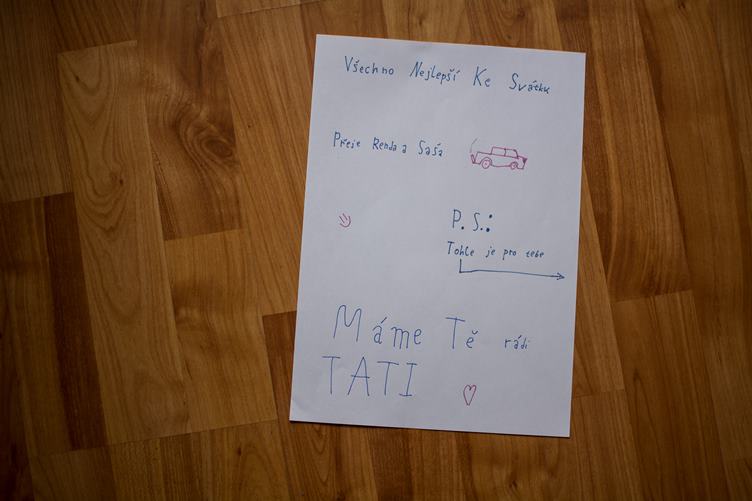 Všechno Nejlepší Ke Svátku
Přeje Renda a Saša
P.S.:
Tohle je pro tebe
Máme Tě rádi
TATI